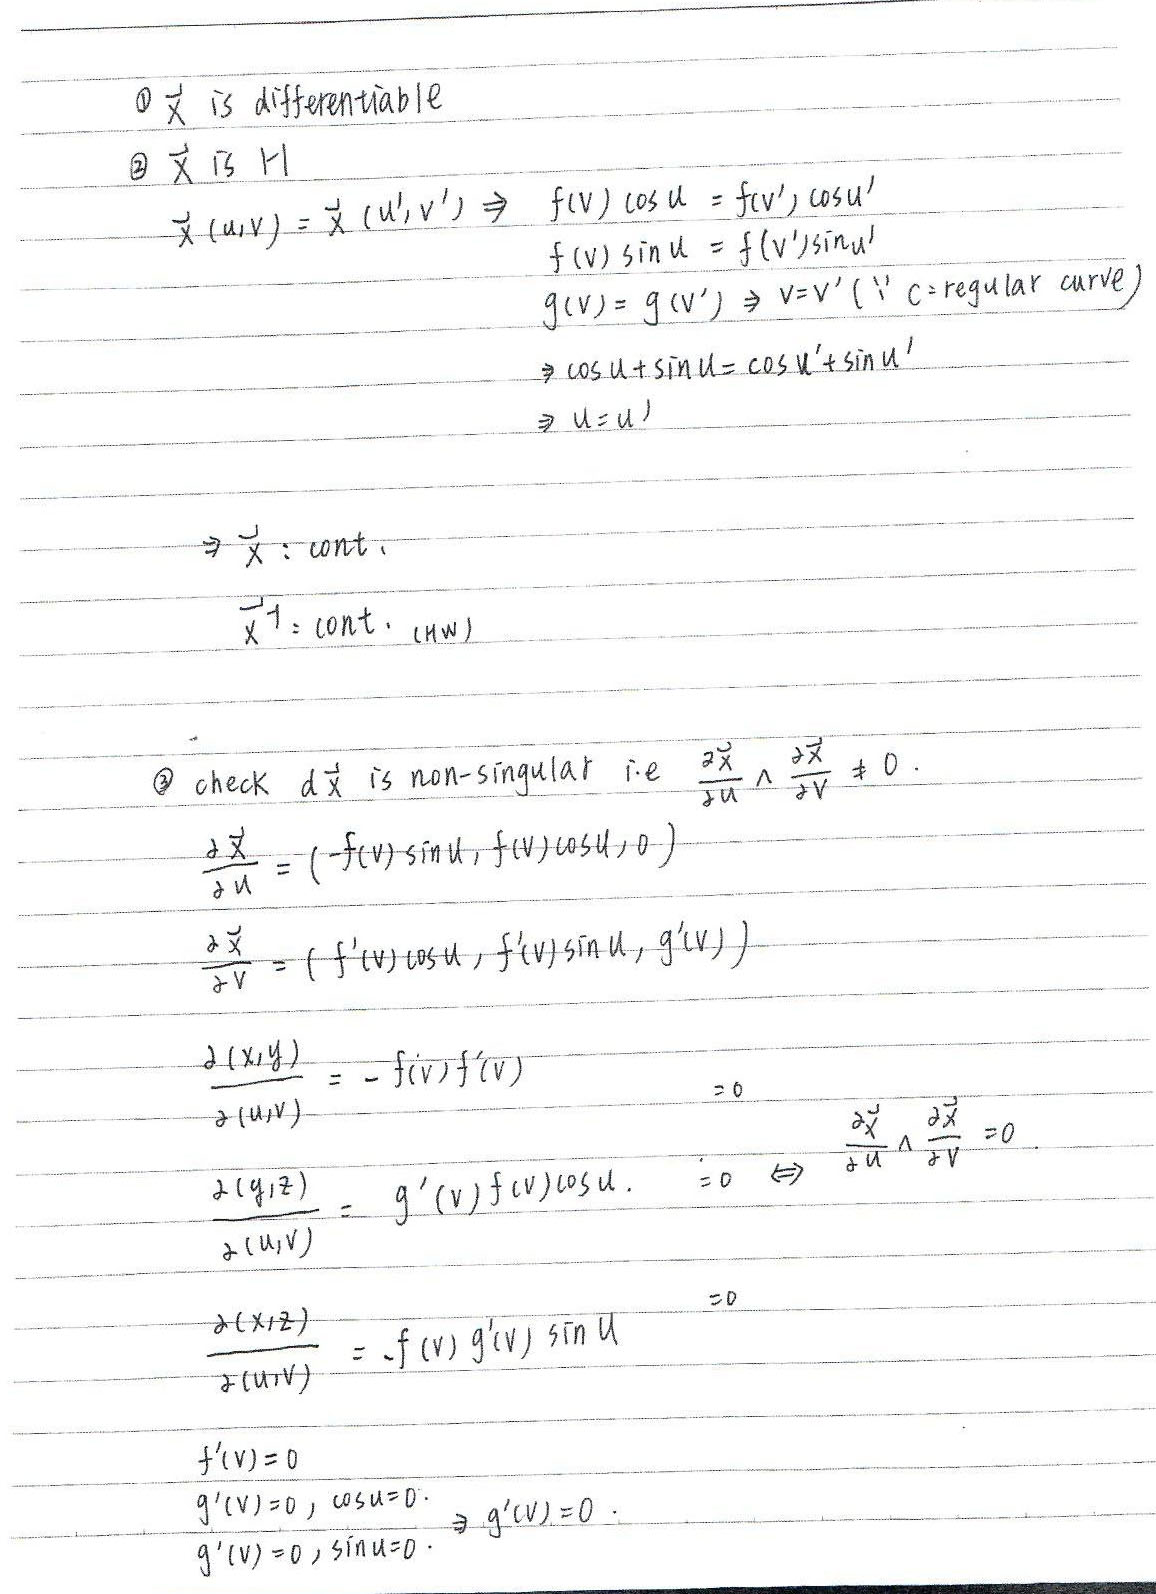 ① x⃗ is differentiable
② x⃗ is 1-1
x⃗(u,v) = x⃗(u',v') ⇒ f(v) cos u = f(v') cos u'
f(v) sin u = f(v') sin u'
g(v) = g(v') ⇒ v=v' (∵ C: regular curve)
⇒ cos u + sin u = cos u' + sin u'
⇒ u = u'
⇒ x⃗ : cont.
x⃗⁻¹ : cont. (HW)
③ check dx⃗ is non-singular i.e ∂x⃗/∂u ∧ ∂x⃗/∂v ≠ 0.
∂x⃗/∂u = (-f(v) sin u, f(v) cos u, 0)
∂x⃗/∂v = (f'(v) cos u, f'(v) sin u, g'(v))
∂(x,y)/∂(u,v) = - f(v) f'(v) =0
∂(y,z)/∂(u,v) = g'(v) f(v) cos u. =0 ⇔ ∂x⃗/∂u ∧ ∂x⃗/∂v =0.
∂(x,z)/∂(u,v) = -f(v) g'(v) sin u =0
f'(v)=0
g'(v)=0, cos u=0.
⇒ g'(v)=0.
g'(v)=0, sin u=0.